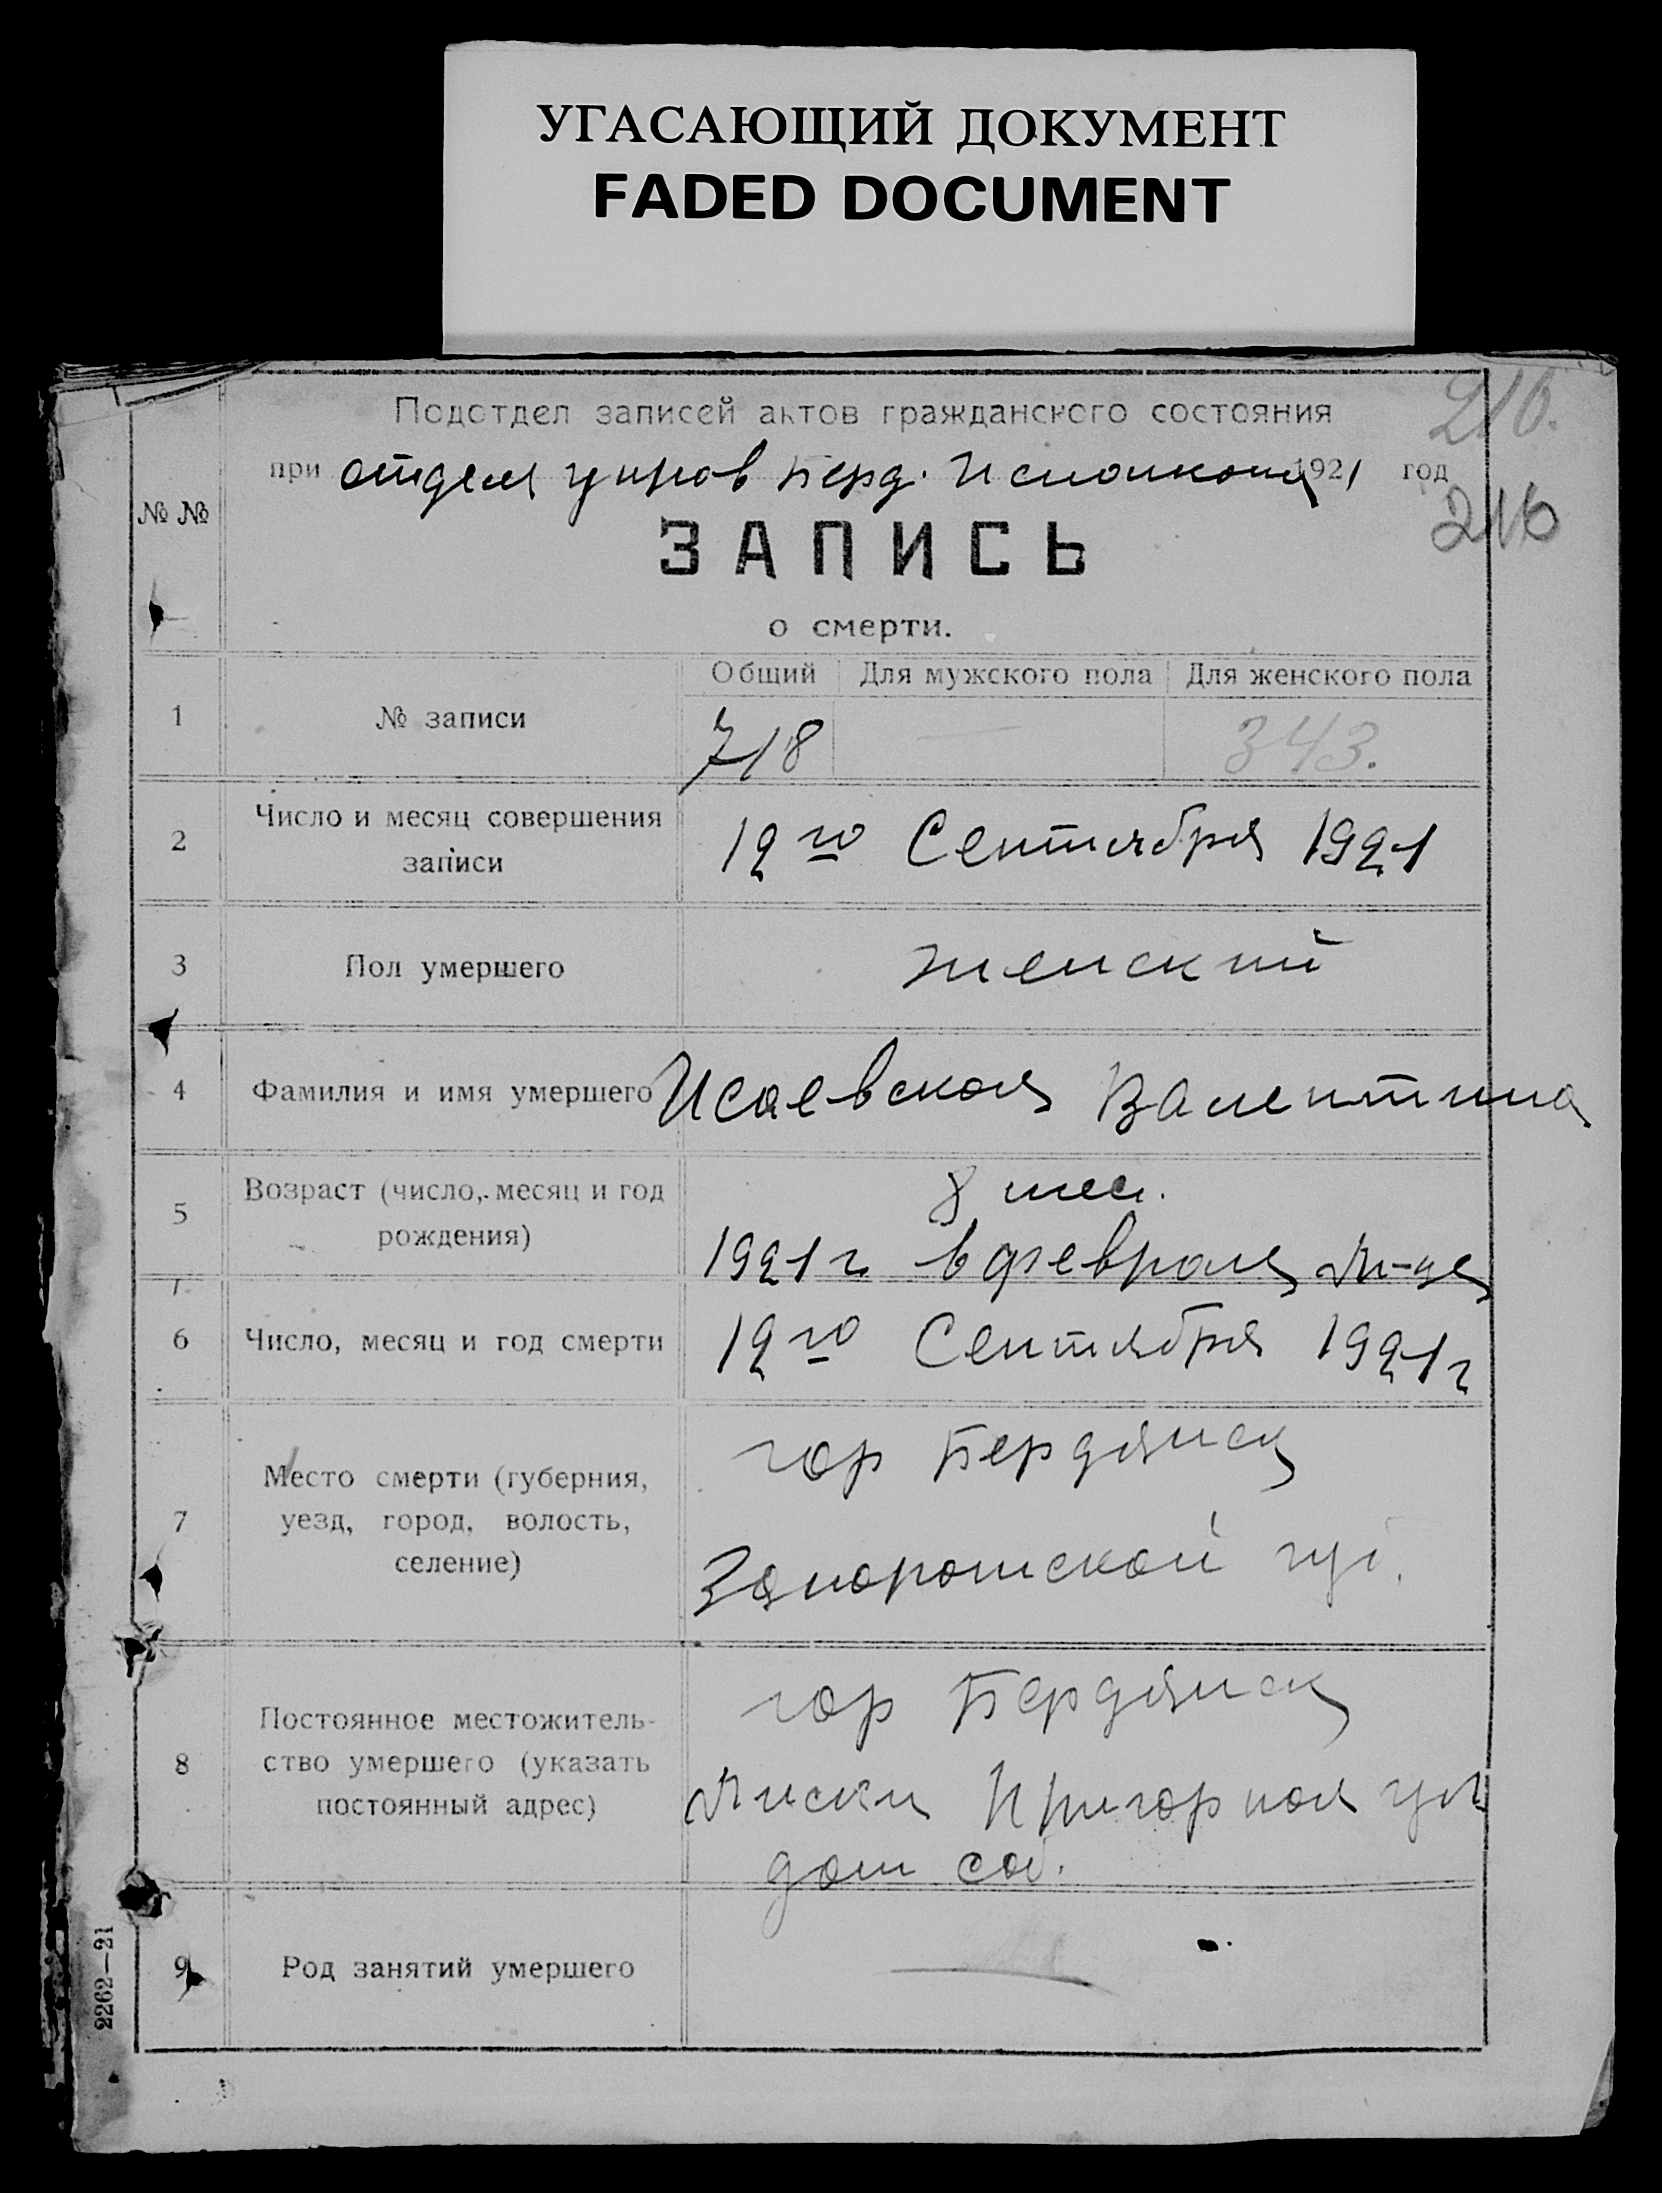 УГАСАЮЩИЙ ДОКУМЕНТ
FADED DOCUMENT
216.
Подотдел записей актов гражданского состояния
при отдел управ Берд. Исполкома 1921 год
216
№ №
ЗАПИСЬ
о смерти.
Общий Для мужского пола Для женского пола
1 № записи 718 — 343.
2 Число и месяц совершения
записи
12го Сентября 1921
3 Пол умершего женский
4 Фамилия и имя умершего Исаевская Валентина
5 Возраст (число, месяц и год
рождения)
8 мес.
1921 г. в феврале м-це
6 Число, месяц и год смерти 12го Сентября 1921 г
7 Место смерти (губерния,
уезд, город, волость,
селение)
гор Бердянск
Запорожской губ.
8 Постоянное местожитель-
ство умершего (указать
постоянный адрес)
гор Бердянск
Лиски Пригорная ул
дом соб.
9 Род занятий умершего —
2262—21